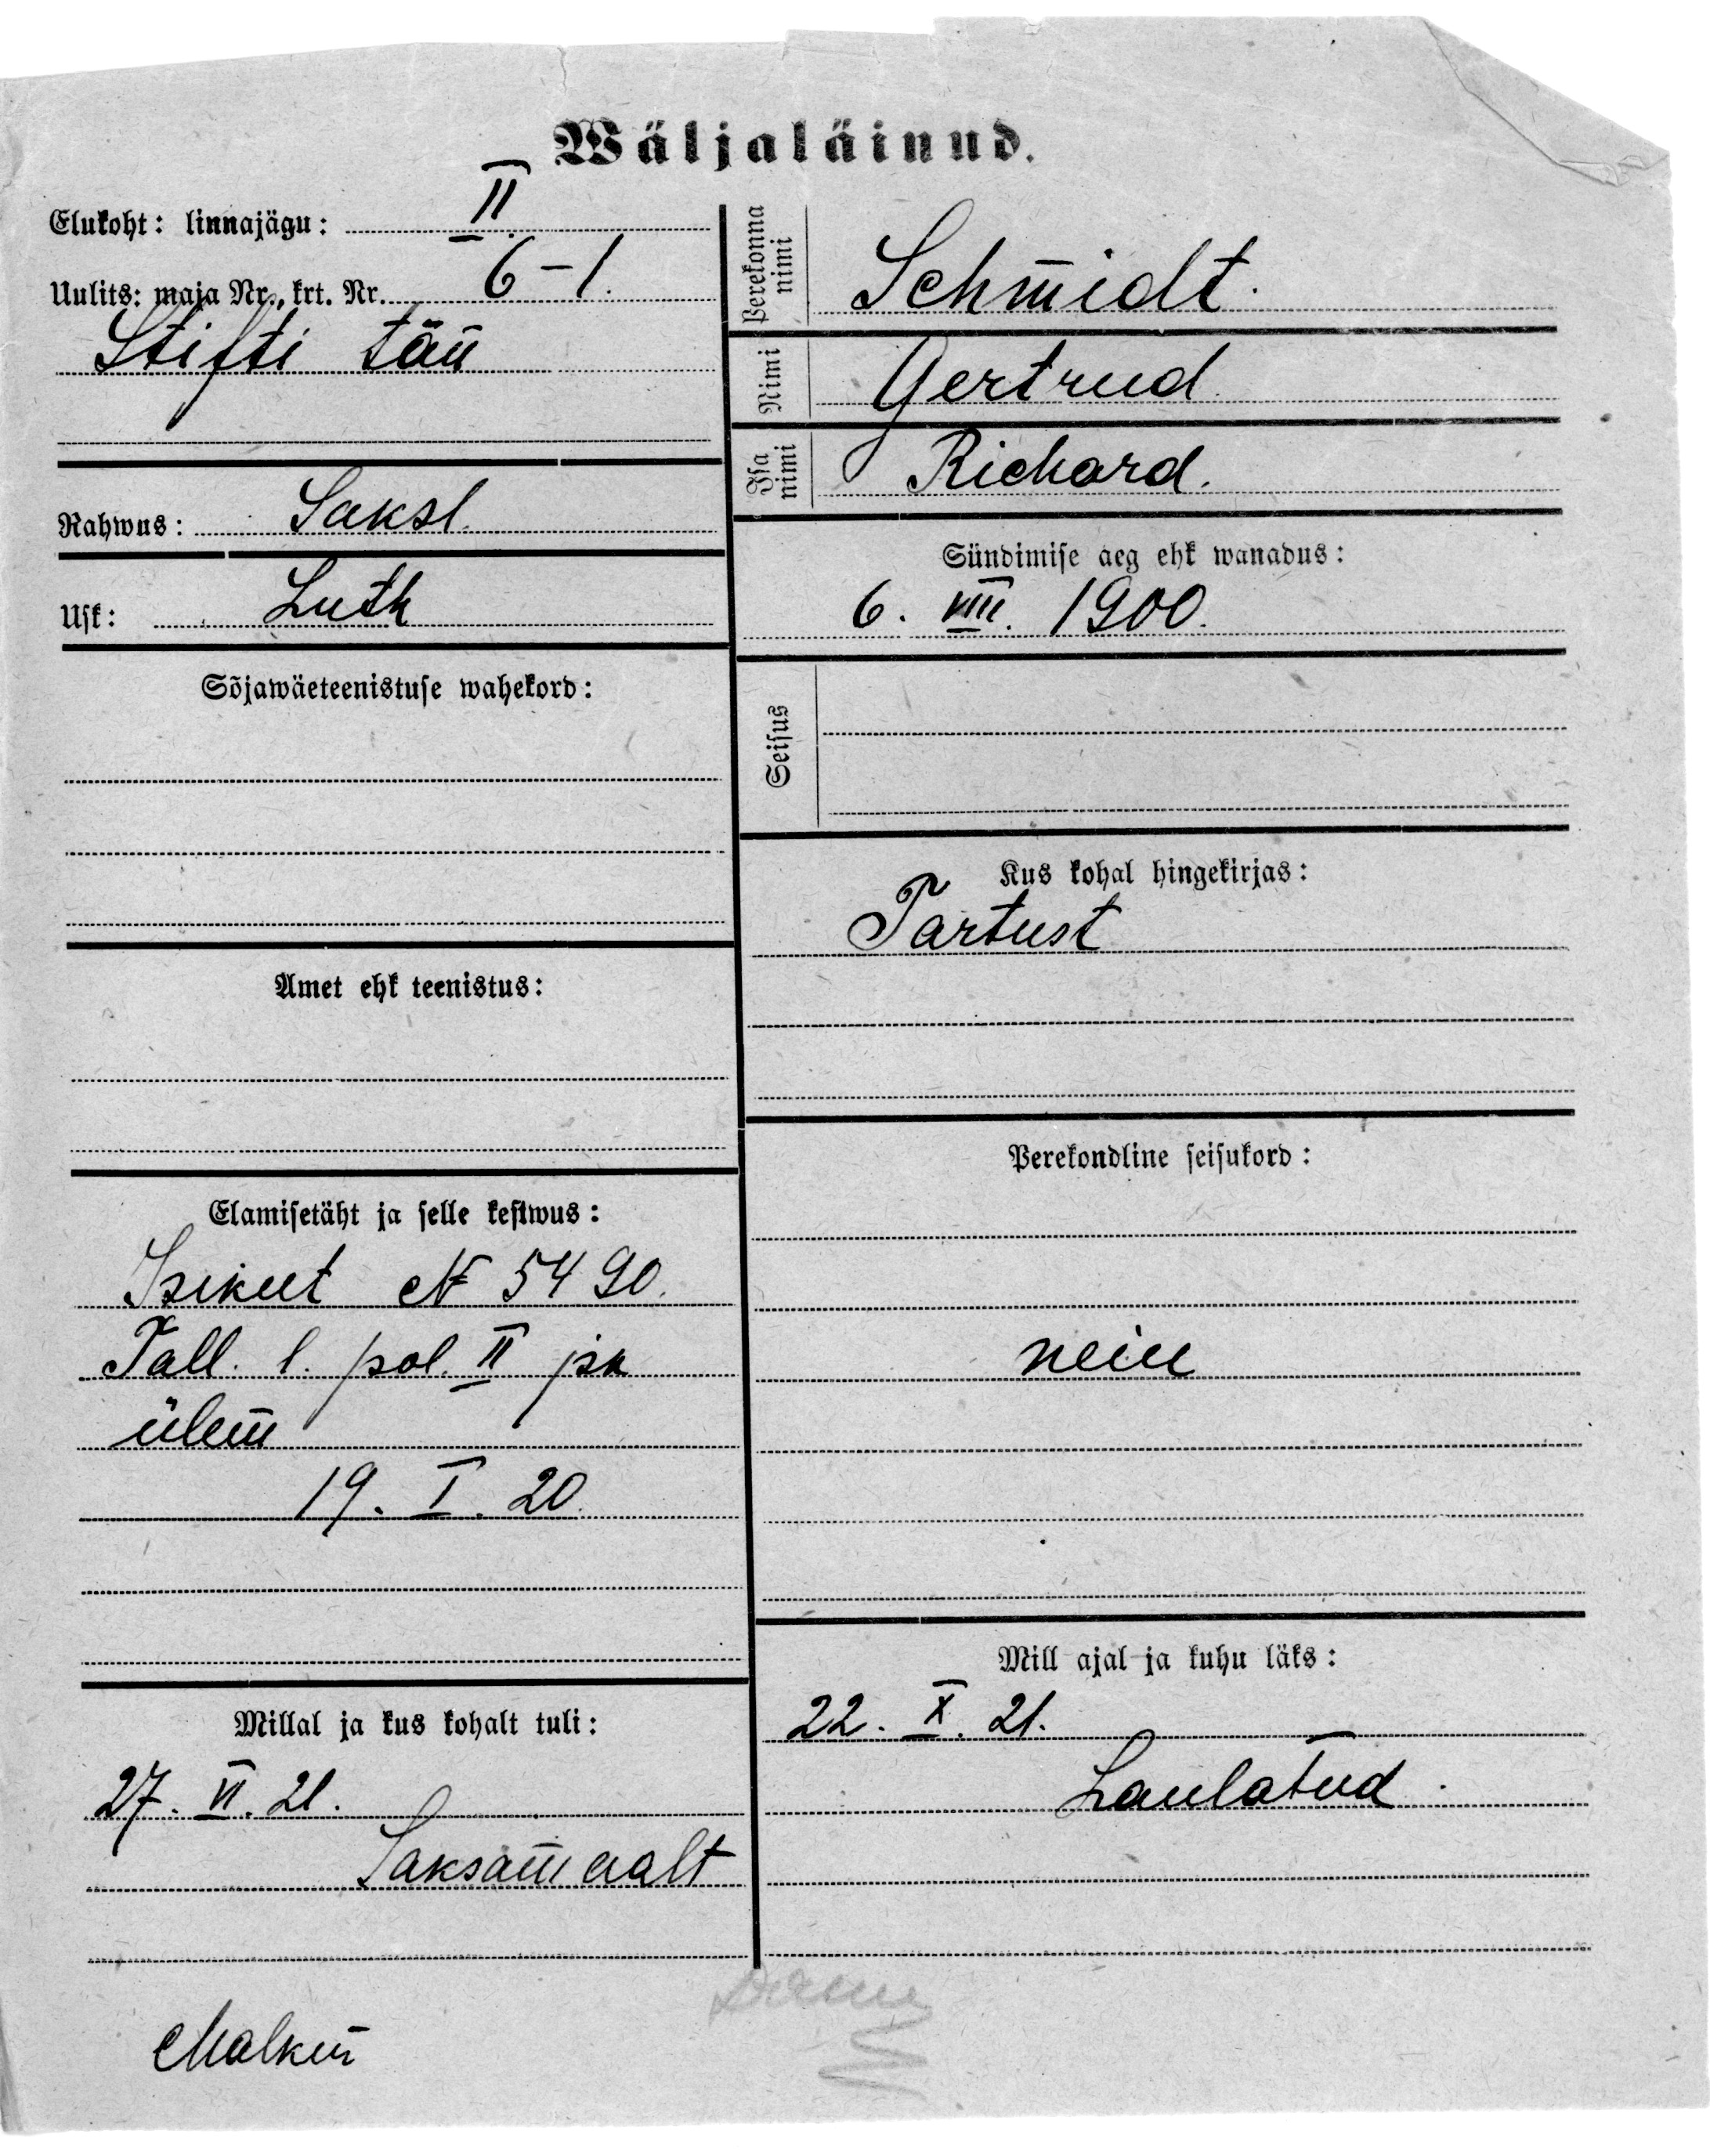 Wäljaläinud.
Elukoht: linnajägu: II
Uulits: maja Nr., krt. Nr. 6-1.
Stifti tän̄
Rahwus: Saksl.
Usk: Luth
Sõjawäeteenistuse wahekord:
Amet ehk teenistus:
Elamisetäht ja selle kestwus:
Isikut № 5490.
Tall. l. pol. II jsk
ülem̄
19. I. 20.
Millal ja kus kohalt tuli:
27. VI. 21.
Saksam̄aalt
Perekonna nimi Schm̄idt.
Nimi Gertrud
Isa nimi Richard.
Sündimise aeg ehk wanadus:
6. VIII. 1900.
Seisus
Kus kohal hingekirjas:
Tartust
Perekondline seisukord:
neiu
Mill ajal ja kuhu läks:
22. X. 21.
Laulatud.